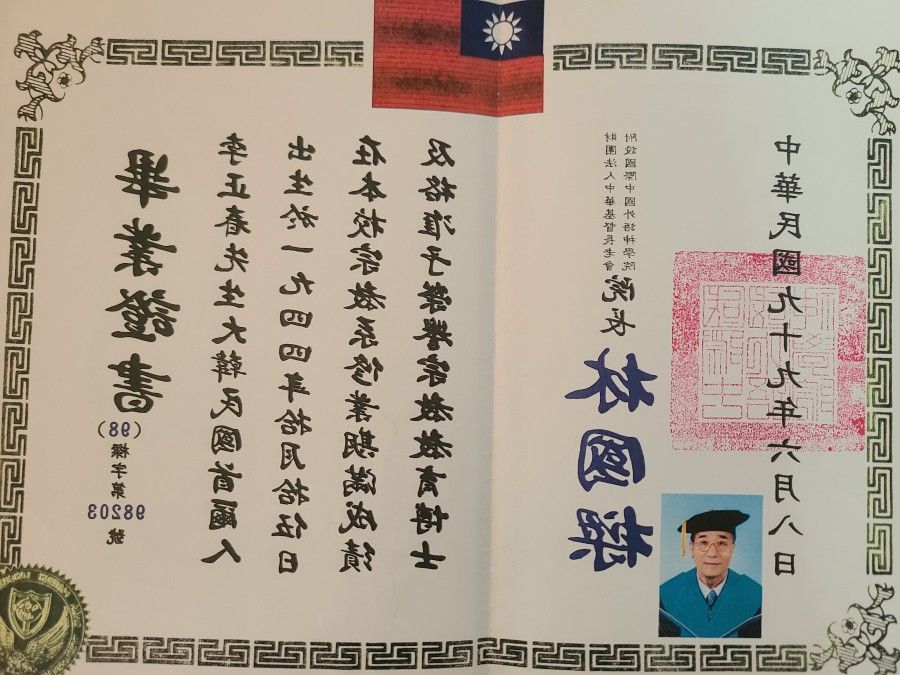 畢業證書
(98)樑字第98203號
李正春先生大韓民國首爾人
出生於一九四四年拾月拾伍日
在本校宗教系修業期滿成績
及格准予榮譽宗教教育博士
財團法人中華基督長老會
附設國際中國外語神學院
院長 林國樑
中華民國九十九年六月八日